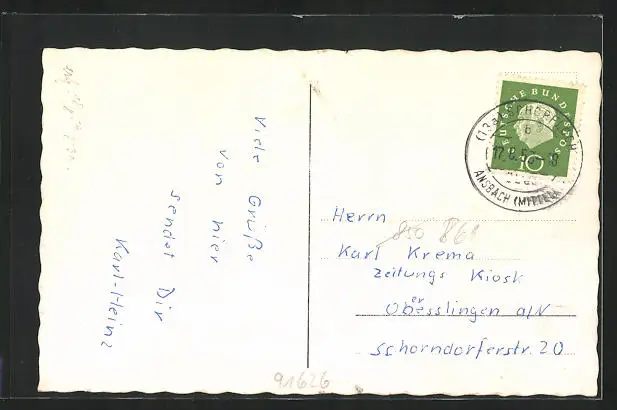 Viele Grüße
von hier
sendet Dir
Karl-Heinz
DEUTSCHE BUNDESPOST
10
(13a)
17.8.59-18
ANSBACH (MITTELFR
Herrn
850 860
Karl Krema
Zeitungs Kiosk
Oberesslingen a/N
Schorndorferstr. 20
91626